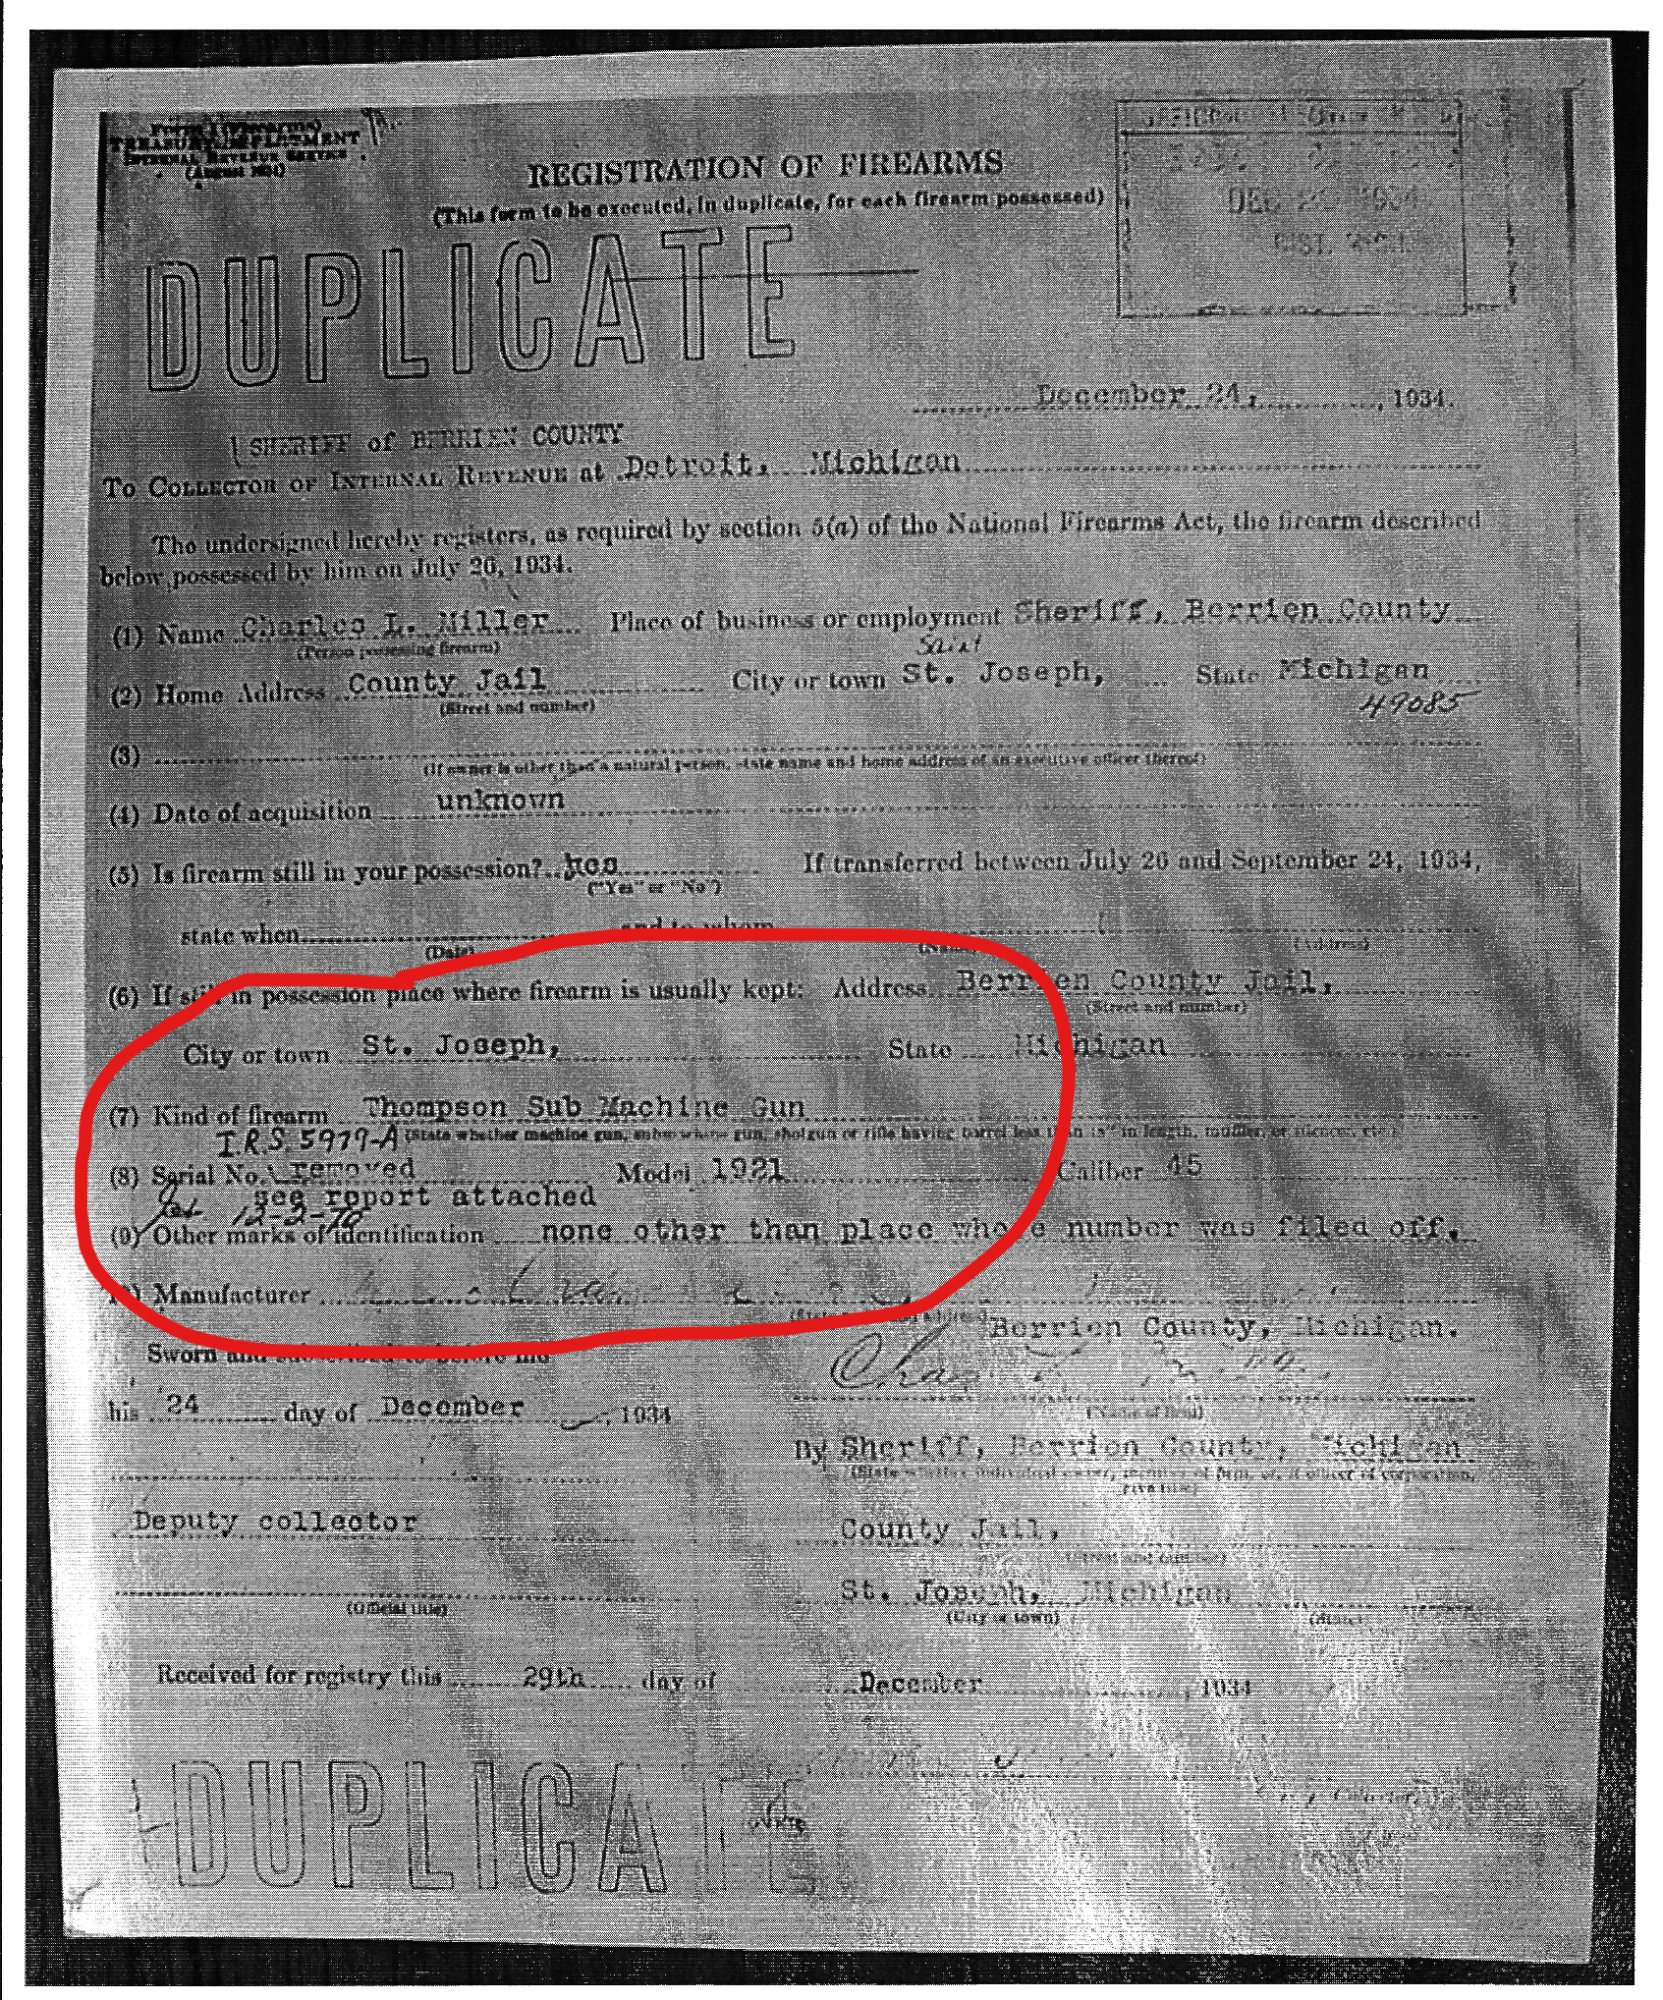 Form 1 (Firearms)
TREASURY DEPARTMENT
INTERNAL REVENUE SERVICE
(August 1934)
REGISTRATION OF FIREARMS
(This form to be executed, in duplicate, for each firearm possessed)
DEC 1934
DUPLICATE
December 24, , 1934.
SHERIFF of BERRIEN COUNTY
To COLLECTOR OF INTERNAL REVENUE at Detroit, Michigan
The undersigned hereby registers, as required by section 5(a) of the National Firearms Act, the firearm described
below possessed by him on July 26, 1934.
(1) Name Charles L. Miller Place of business or employment Sheriff, Berrien County
(Person possessing firearm)
Saint
(2) Home Address County Jail City or town St. Joseph, State Michigan
(Street and number) 49085
(3)
(If owner is other than a natural person, state name and home address of an executive officer thereof)
(4) Date of acquisition unknown
(5) Is firearm still in your possession? yes If transferred between July 26 and September 24, 1934,
("Yes" or "No")
state when and to whom
(Date) (Name) (Address)
(6) If still in possession place where firearm is usually kept: Address Berrien County Jail,
(Street and number)
City or town St. Joseph, State Michigan
(7) Kind of firearm Thompson Sub Machine Gun
I.R.S. 5979-A (State whether machine gun, submachine gun, shotgun or rifle having barrel less than 18" in length, muffler, or silencer, etc.)
(8) Serial No. removed Model 1921 Caliber 45
see report attached
12-2-70
(9) Other marks of identification none other than place where number was filed off.
(10) Manufacturer
Berrien County, Michigan.
Sworn and subscribed to before me
Chas
his 24 day of December , 1934
(Name of firm)
By Sheriff, Berrien County, Michigan
(State whether individual owner, member of firm, or, if officer of corporation,
give title)
Deputy collector
County Jail,
(Street and number)
St. Joseph, Michigan
(Official title)
(City or town) (State)
Received for registry this 29th day of December , 1934
DUPLICATE